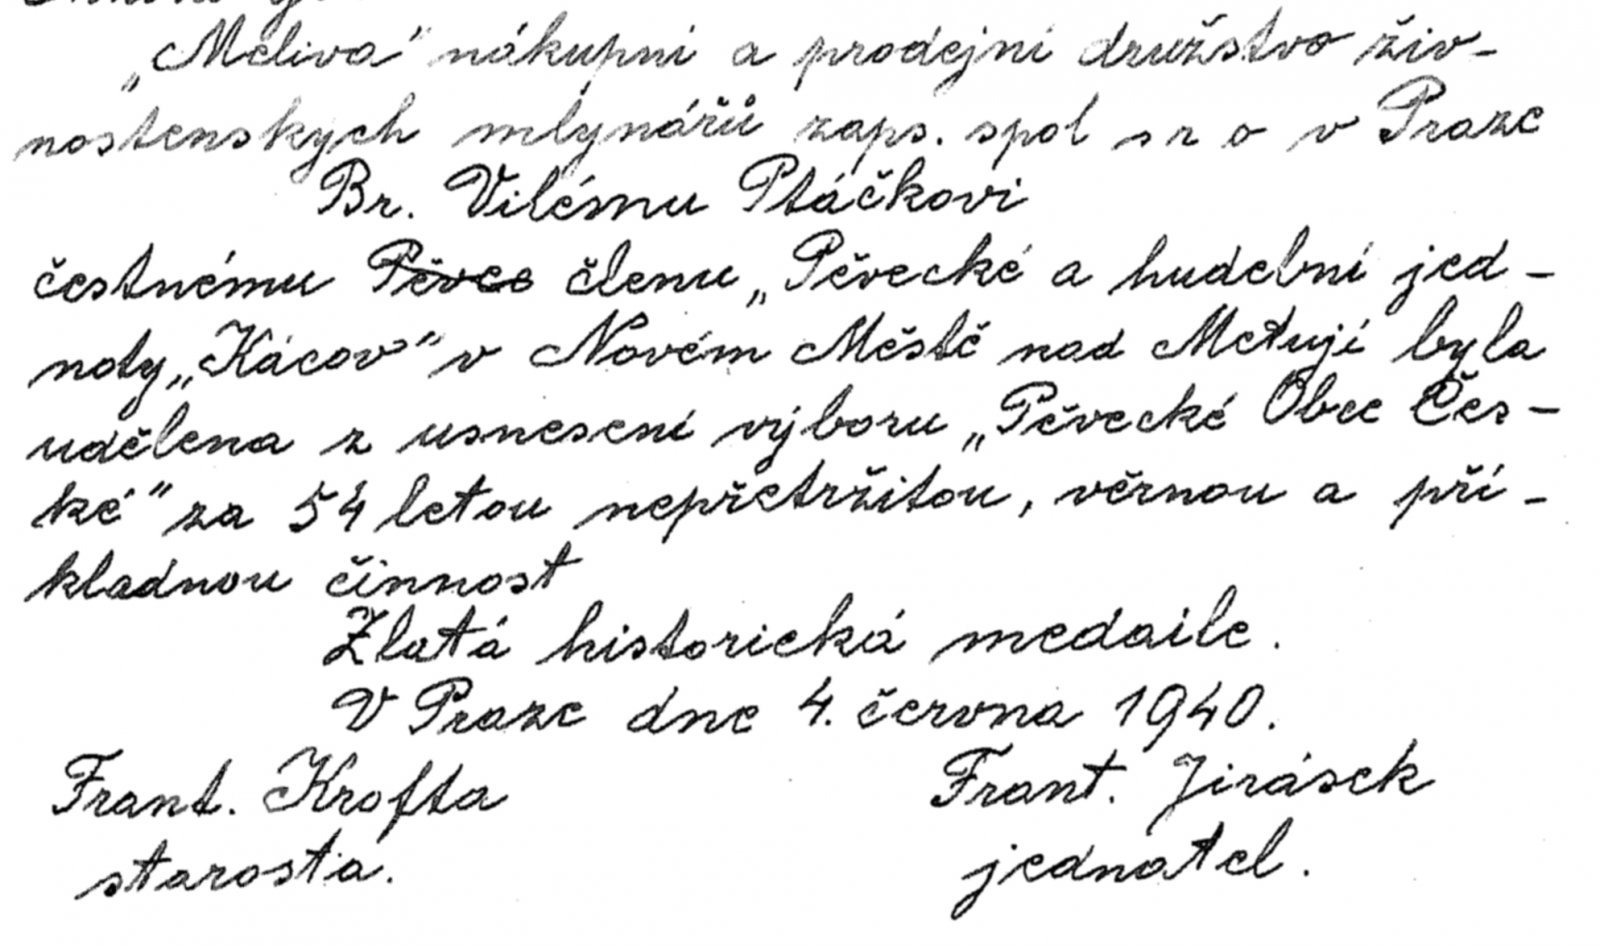 „Meliva" nákupni a prodejni družstvo živ-
nostenskych mlynářů zaps. spol s r o v Praze
Br. Vilému Ptáčkovi
čestnému Pěvec členu „Pěvecké a hudební jed-
noty „Kácov" v Novém Městě nad Metují byla
udělena z usnesení výboru „Pěvecké Obce Čes-
ké" za 54 letou nepřetržitou, věrnou a pří-
kladnou činnost
Zlatá historická medaile.
V Praze dne 4. června 1940.
Frant. Krofta Frant. Jirásek
starosta. jednatel.